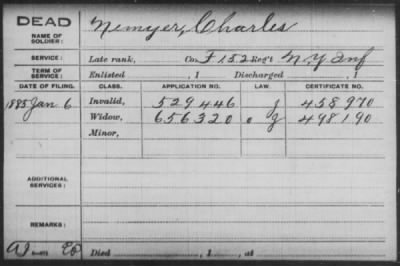 DEAD
NAME OF SOLDIER: Nemyer, Charles
SERVICE: Late rank, Co. F 152 Reg't N.Y. Inf
TERM OF SERVICE: Enlisted , 1 Discharged , 1
DATE OF FILING. CLASS. APPLICATION NO. LAW. CERTIFICATE NO.
1885 Jan. 6 Invalid, 529446 J 458970
Widow, 656320 J 498190
Minor,
ADDITIONAL SERVICES:
REMARKS:
Died , 1 , at